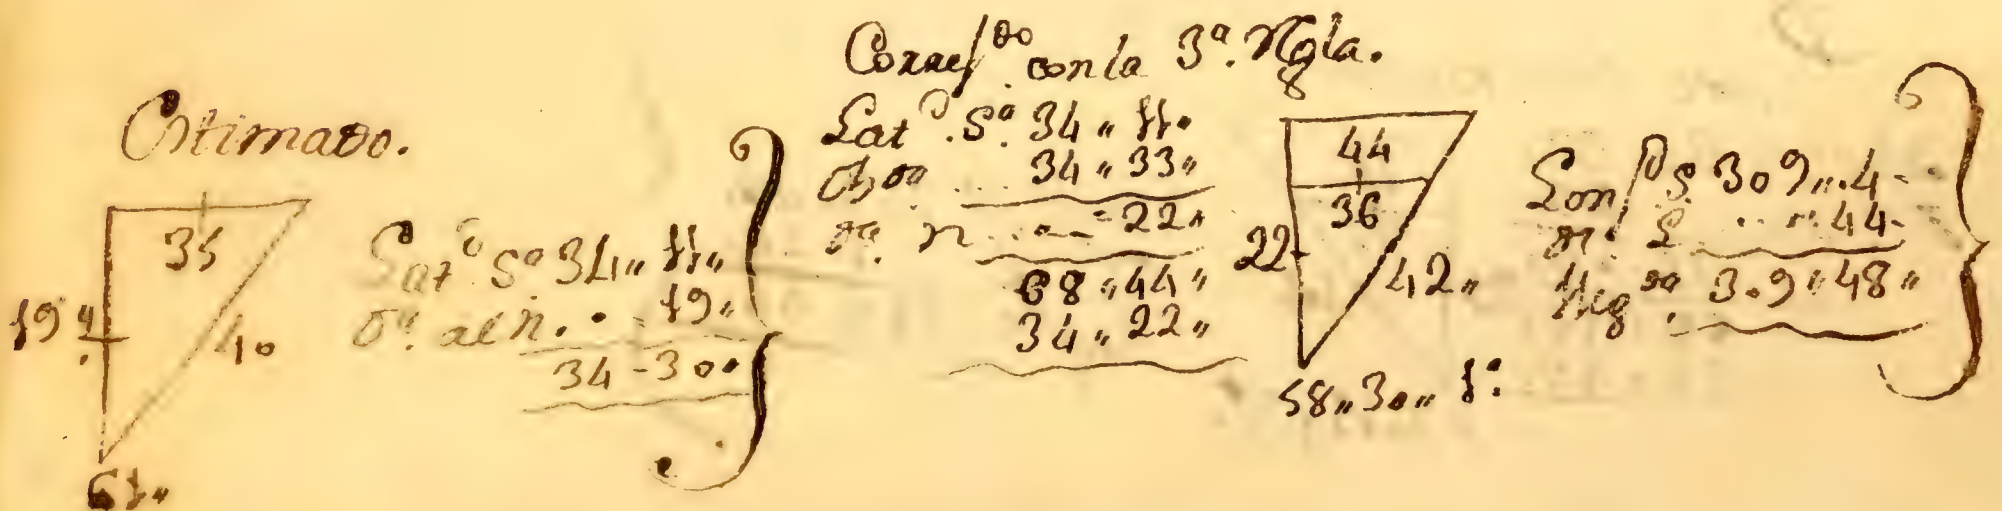 Estimado.
35
19"
40
61"
Lat.d S.a 34" 11"
D.a al N. . = 19"
34 - 30"
Correg.do con la 3.a Rgla.
Lat.d S.a 34" 11"
34" 33"
D.a N ... = 22"
68" 44"
34" 22"
44
36
22
42"
58" 30" 1.o
Lon.d S. 309" 4
44
Lleg.da 309" 48"